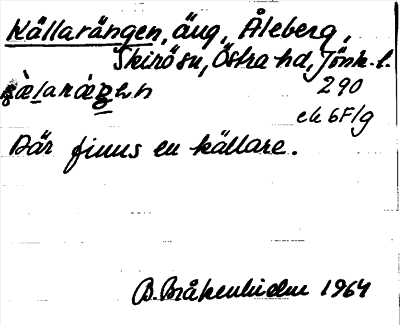 Källarängen, äng, Åleberg,
Skirö sn, Östra hd, Jönk. l.
290
ek 6F/g
Där finns en källare.
B. Bråkenhielm 1964